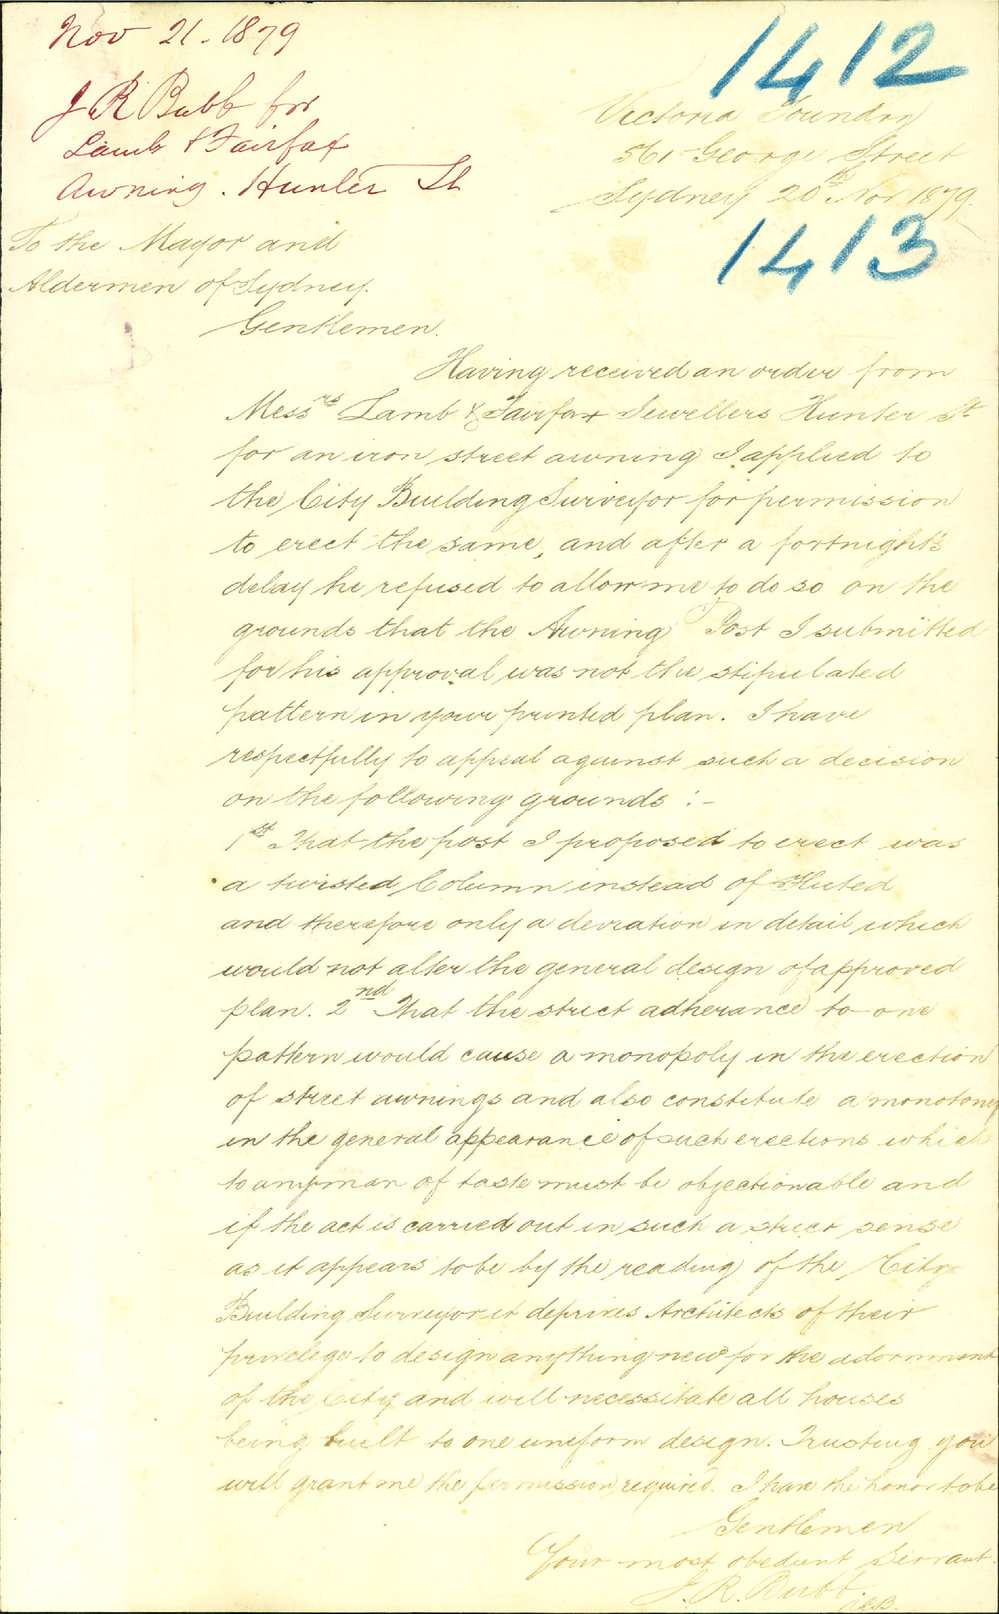 Nov 21. 1879
J R Bubb for
Lamb & Fairfax
Awning. Hunter St
1412
Victoria Foundry
561 George Street
Sydney 20th Nov 1879.
1413
To the Mayor and
Aldermen of Sydney.
Gentlemen.
Having received an order from
Messrs Lamb & Fairfax Jewellers Hunter St
for an iron street awning I applied to
the City Building Surveyor for permission
to erect the same, and after a fortnight's
delay he refused to allow me to do so on the
grounds that the Awning Post I submitted
for his approval was not the stipulated
pattern in your printed plan. I have
respectfully to appeal against such a decision
on the following grounds :-
1st That the post I proposed to erect was
a twisted Column instead of Fluted
and therefore only a deviation in detail which
would not alter the general design of approved
plan. 2nd That the strict adherance to one
pattern would cause a monopoly in the erection
of street awnings and also constitute a monotony
in the general appearance of such erections which
to any man of taste must be objectionable and
if the act is carried out in such a strict sense
as it appears to be by the reading of the City
Building Surveyor it deprives Architects of their
privelege to design anything new for the adornment
of the City and will necessitate all houses
being built to one uniform design. Trusting you
will grant me the permission required. I have the honor to be
Gentlemen
Your most obedient Servant.
J. R. Bubb